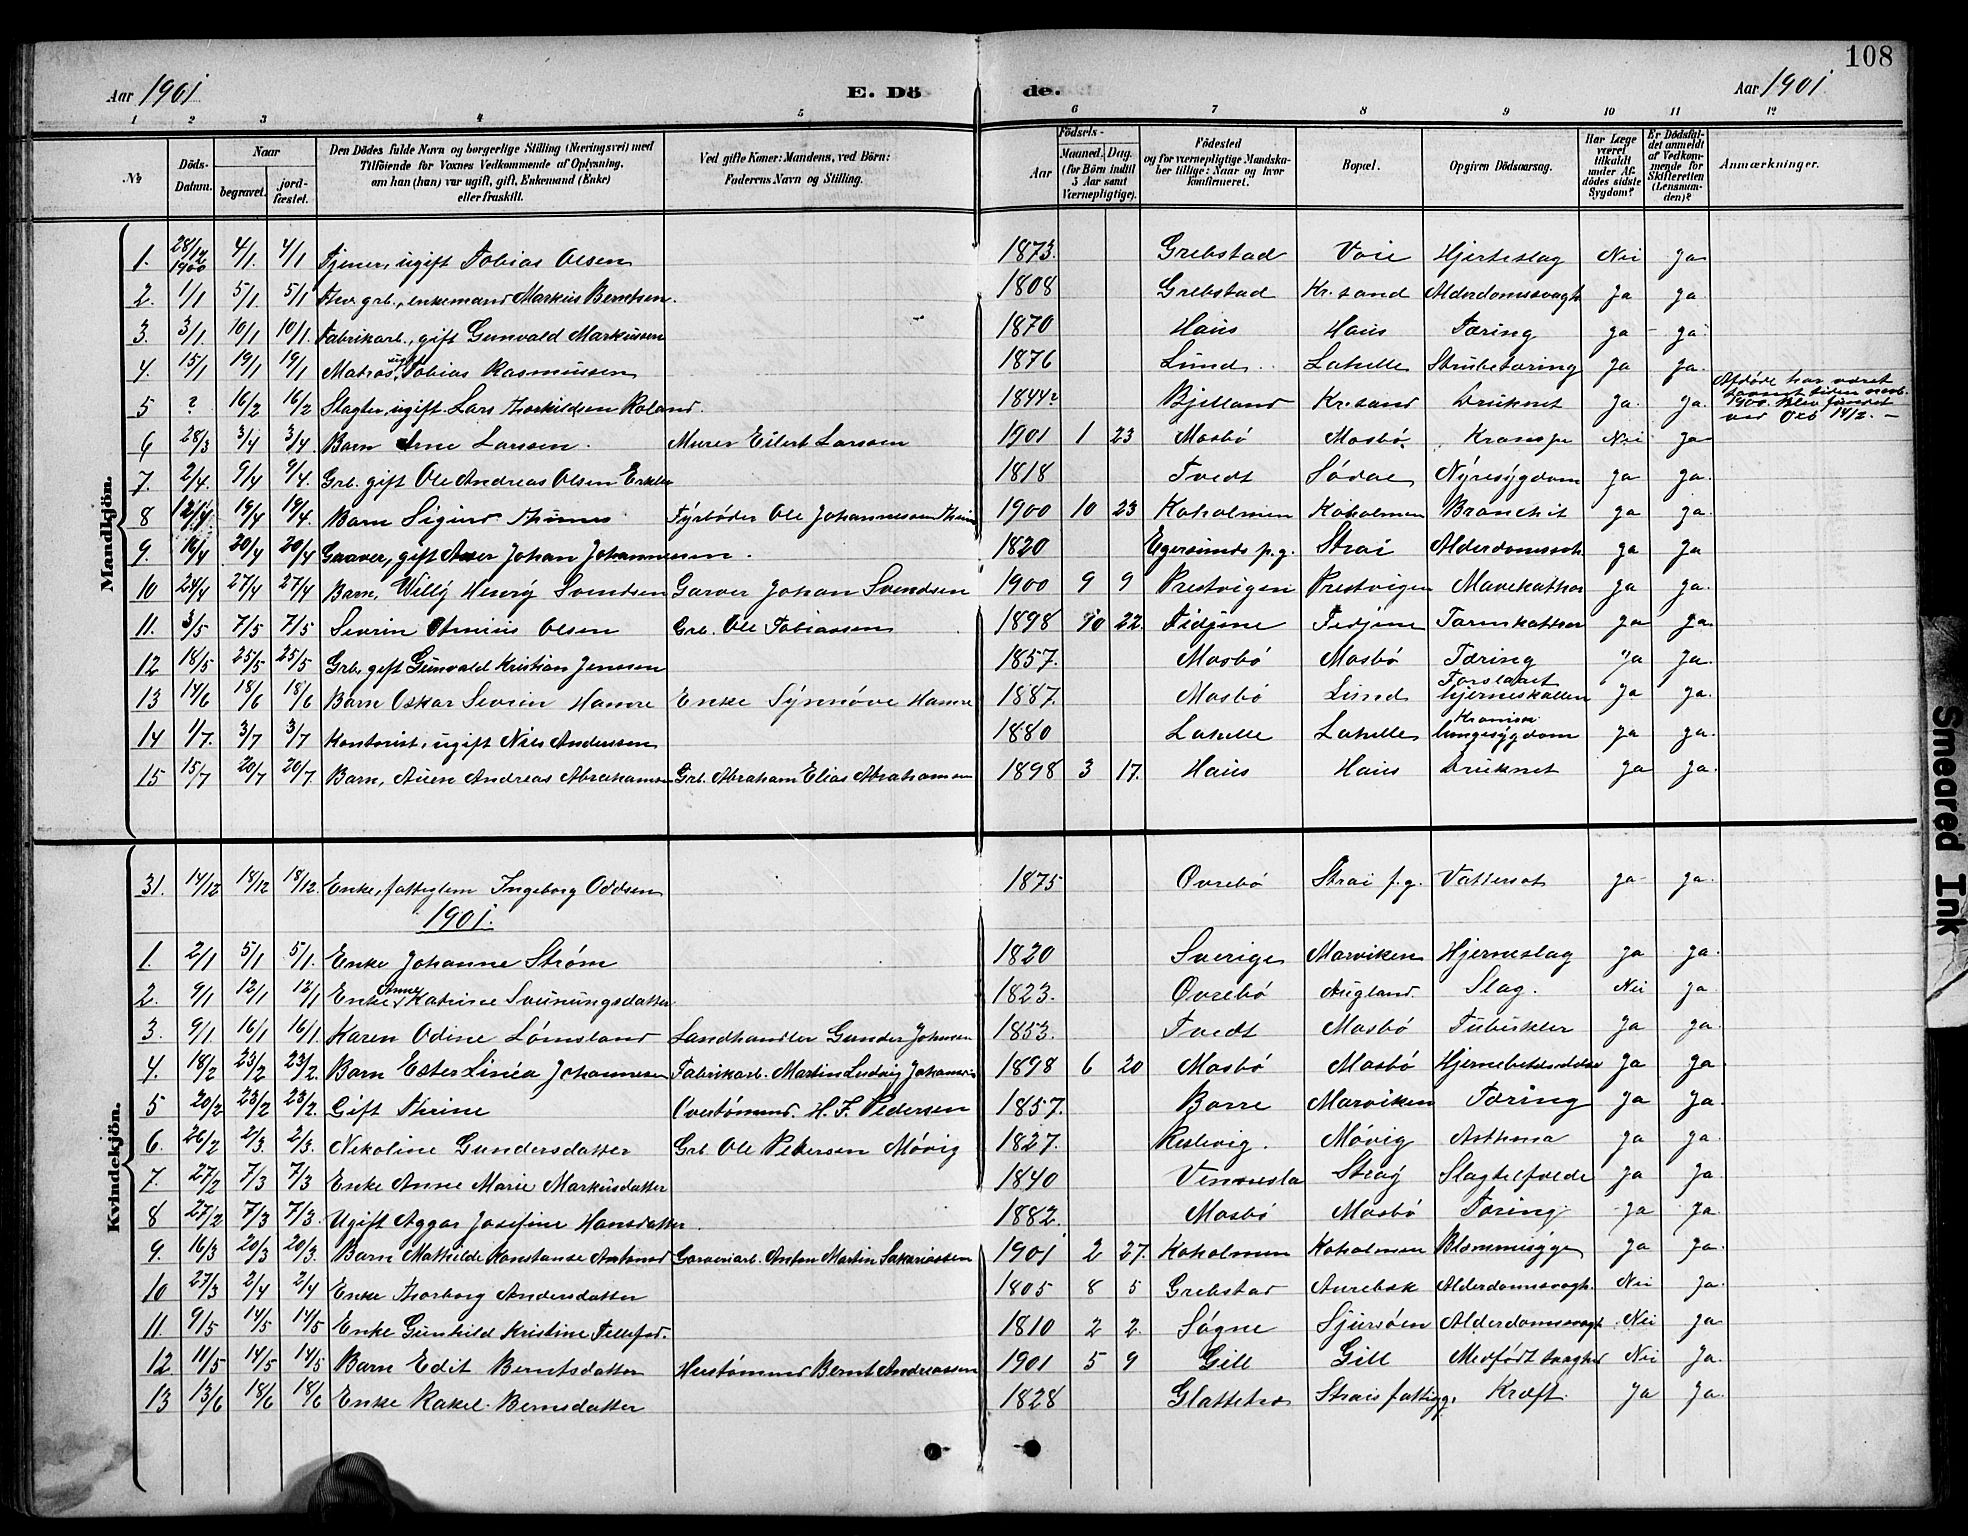 108
Aar 1901
E. Dö
de.
Aar 1901
1 2 3 4 5 6 7 8 9 10 11 12
№
Döds-Datum.
Naar
begravet.
jord-fæstet.
Den Dödes fulde Navn og borgerlige Stilling (Næringsvei) med
Tilföiende for Voxnes Vedkommende af Oplysning,
om han (hun) var ugift, gift, Enkemand (Enke)
eller fraskilt.
Ved gifte Koner: Mandens, ved Börn:
Faderens Navn og Stilling.
Födsels-
Aar
Maaned. Dag.
(for Börn indtil
5 Aar samt
Værnepligtige).
Födested
og for værnepligtige Mandska-
ber tillige: Naar og hvor
konfirmeret.
Bopæl.
Opgiven Dödsaarsag.
Har Læge
været
tilkaldt
under Af-
dödes sidste
Sygdom?
Er Dödsfal-
det anmeldt
af Vedkom-
mende for
Skifteretten
(Lensman-
den)?
Anmærkninger.
Mandkjön.
1. 28/12 1900 4/1. 4/1 Tjener, ugift Tobias Olsen 1873. Grebstad Voie Hjerteslag Nei Ja
2. 1/1 5/1 5/1 enkemand Markus Berntsen. 1808 Grebstad Kr.sand Alderdomssvagh Ja Ja.
3. 3/1 10/1 10/1 Fabrikarb., gift Gunvald Markussen 1870 Haus Haus Tæring Ja Ja
4. 15/1 19/1 19/1 Matros, ugift Tobias Rasmussen 1876 Lund Lahelle Strubetæring Ja Ja.
5 ? 16/2 16/2 Slagter, ugift. Lars Thorkildsen Roland. 1844? Bjelland Kr.sand Druknet Ja. Ja. Afdøde har været
1900. Blev fundet
ved 14/2.
6 28/3 3/4 3/4 Barn Arne Larsen. Murer Eilert Larsen 1901 1 23 Mosbö Mosbö Krampe Nei Ja
7. 2/4. 9/4 9/4. Grb. gift Ole Andreas Olsen 1818 Tvedt Södal Nyresygdom Ja Ja.
8 12/4 19/4 19/4. Barn Sigurd Fyrböder Ole Johannessen 1900 10 23 Koholmen Koholmen Bronchit Ja Ja.
9. 16/4 20/4 20/4 Garver, gift Johan Johannessen. 1820 Egersunds p.g. Strai Alderdomssv Ja Ja
10 24/4 27/4 27/4 Barn, Willy Henry Svendsen Garver Johan Svendsen 1900 9 9 Prestvigen Prestvigen Mavekathar Ja Ja.
11. 3/5 7/5 7/5 Sevrin Olsen Grb. Ole Tobiassen 1898 10 22. Fidjene Fidjene Tarmkathar Ja Ja.
12 18/5 25/5 25/5 Grb. gift Gunvald Kristian Jenssen 1857. Mosbö Mosbö Tæring Ja Ja.
13 14/6 18/6 18/6 Barn Oskar Sevrin Hamre Enke Synnöve Hamre 1887. Mosbö Lund Forslaaet
hjerneskallen Ja Ja.
14 1/7. 3/7 3/7 Kontorist, ugift Nils Anderssen 1880 Lahelle Lahelle Kronisk
lungesygdom Ja Ja.
15 15/7 20/7 20/7 Barn, Andreas Abrahamsen Grb. Abraham Elias Abrahamsen 1898 3 17. Haus Haus Druknet Ja Ja.
Kvindekjön.
31. 14/12 18/12 18/12. Enke, fattiglem Ingeborg Oddsen 1875 Övrebö Strai f.g. Vattersot Ja Ja.
1901.
1. 2/1 5/1 5/1. Enke Johanne Ström 1820 Sverige Marviken Hjerneslag Ja Ja.
2. 9/1 12/1 12/1 Enke Anne Katrine Sveinungsdatter 1823. Övrebö Augland. Slag. Nei Ja
3. 9/1. 16/1 16/1 Karen Odine Lömsland Landhandler Gunder Johnsen 1853. Tvedt Mosbö Tuberkler Ja Ja.
4. 18/2 23/2 23/2. Barn Ester Linéa Johannesen Fabrikarb. Martin Ludvig Johannes 1898 6 20 Mosbö Mosbö Hjernebetændelse Ja Ja
5 20/2 23/2 23/2. Gift Thrine H. F. Pedersen 1857. Borre Marviken Tæring Ja Ja.
6. 26/2 2/3. 2/3. Nikoline Gundersdatter Grb. Ole Petersen Mövig 1827. Mövig Asthma Ja Ja.
7. 27/2 7/3 7/3 Enke Anne Marie Markusdatter 1840 Vennesla Stray Slagtilfælde Ja Ja.
8 27/2 7/3 7/3. Ugift Aggar Josefine Hansdatter. 1882. Mosbö Mosbö Tæring Ja Ja.
9. 16/3 20/3 20/3. Barn Mathilde Konstanse Garveriarb. Anton Martin Sakariassen 1901 2 27. Koholmen Koholmen Blommesyge Ja Ja.
10 27/3 2/4 2/4 Enke Thorborg Andersdatter 1805 8 5 Grebstad Aurebek Alderdomssvagh. Nei Ja.
11. 9/5 14/5 14/5 Enke Gunhild Kristine Tellefsd. 1810 2 2. Sögne Sjursöen Alderdomssvagh Nei Ja
12. 11/5 14/5 14/5 Barn Edit Berntsdatter Hustömmer Bernt Andreassen 1901 5 9 Gill Gill Medfödt svaghed Nei Ja.
13 13/6 18/6 18/6 Enke Rakel Berntsdatter 1828 Glattetre Strais fattigg. Kræft. Ja Ja.
Smeared Ink